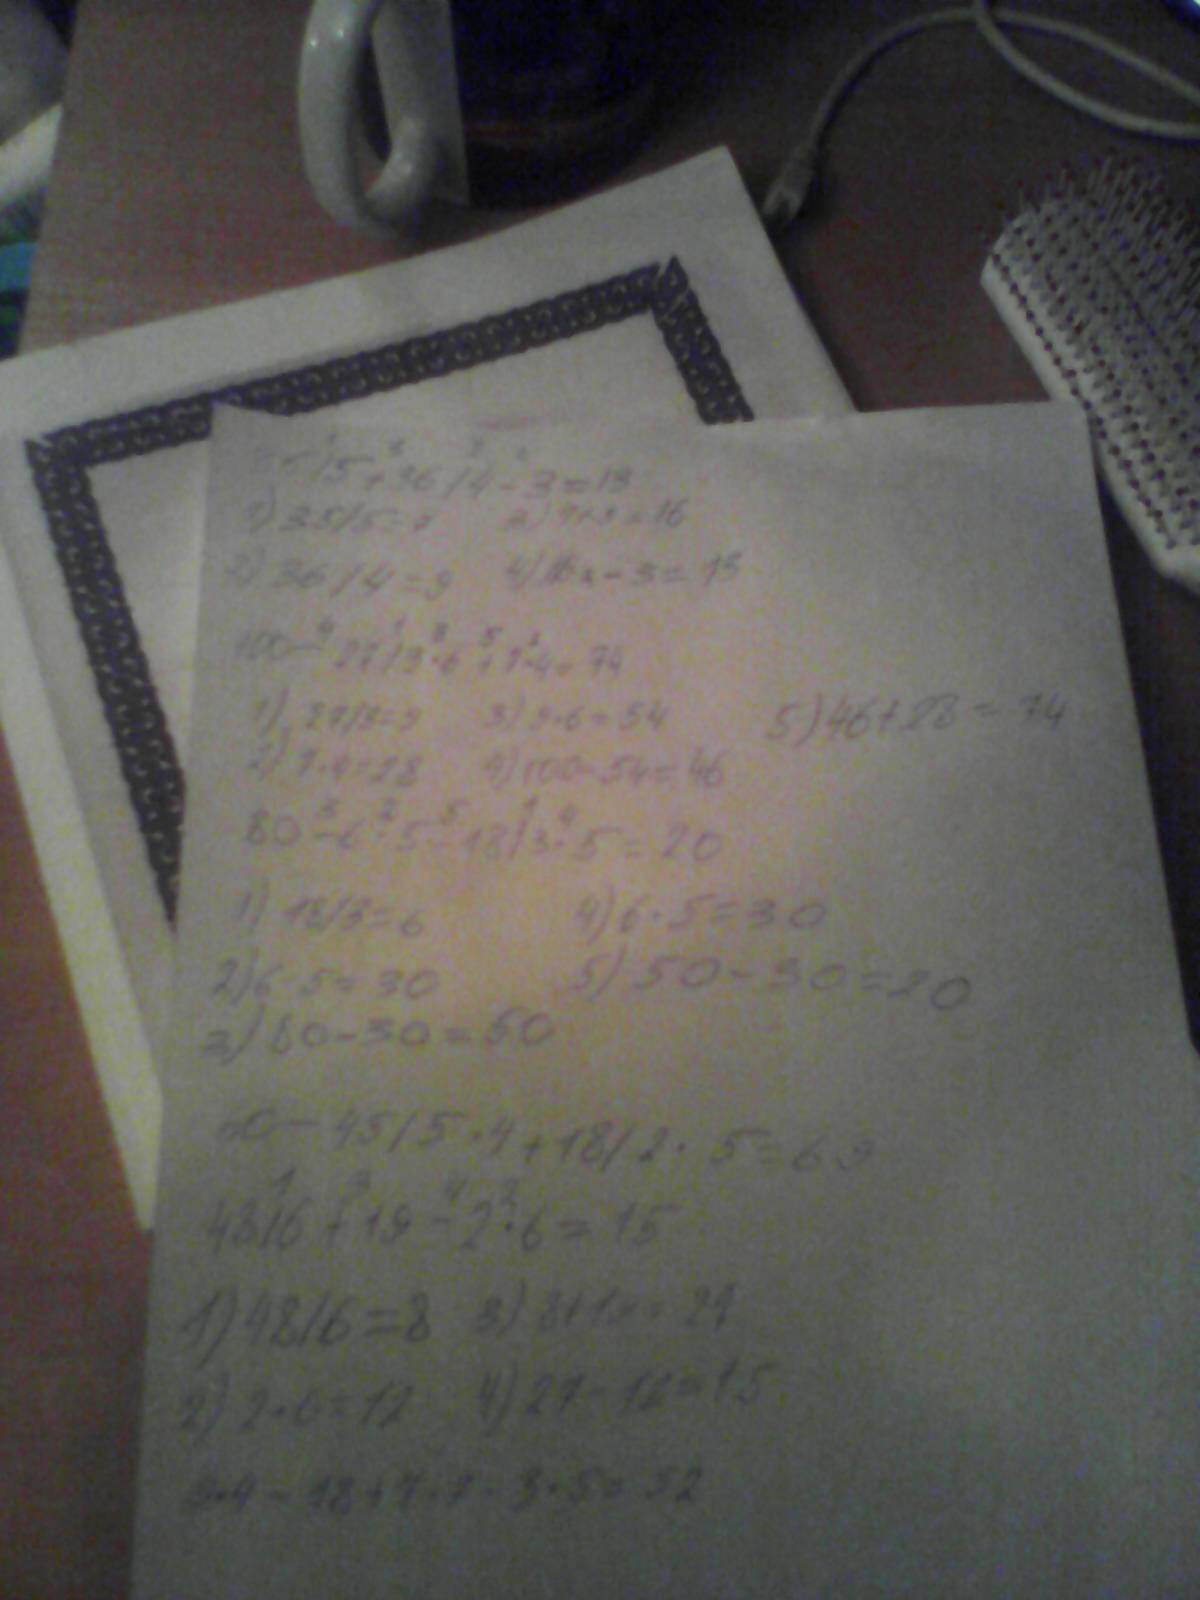 35/5+36/4-3=13
1) 35/5=7 3) 7+9=16
2) 36/4=9 4) 16-3=13
100-27/3·6+7·4=74
1) 27/3=9 3) 9·6=54 5) 46+28=74
2) 7·4=28 4) 100-54=46
80-6·5-18/3·5=20
1) 18/3=6 4) 6·5=30
2) 6·5=30 5) 50-30=20
3) 80-30=50
-45/5·4+18/2·5=69
48/6+19-2·6=15
1) 48/6=8 3) 8+19=27
2) 2·6=12 4) 27-12=15
9·4-18+7·7-3·5=52